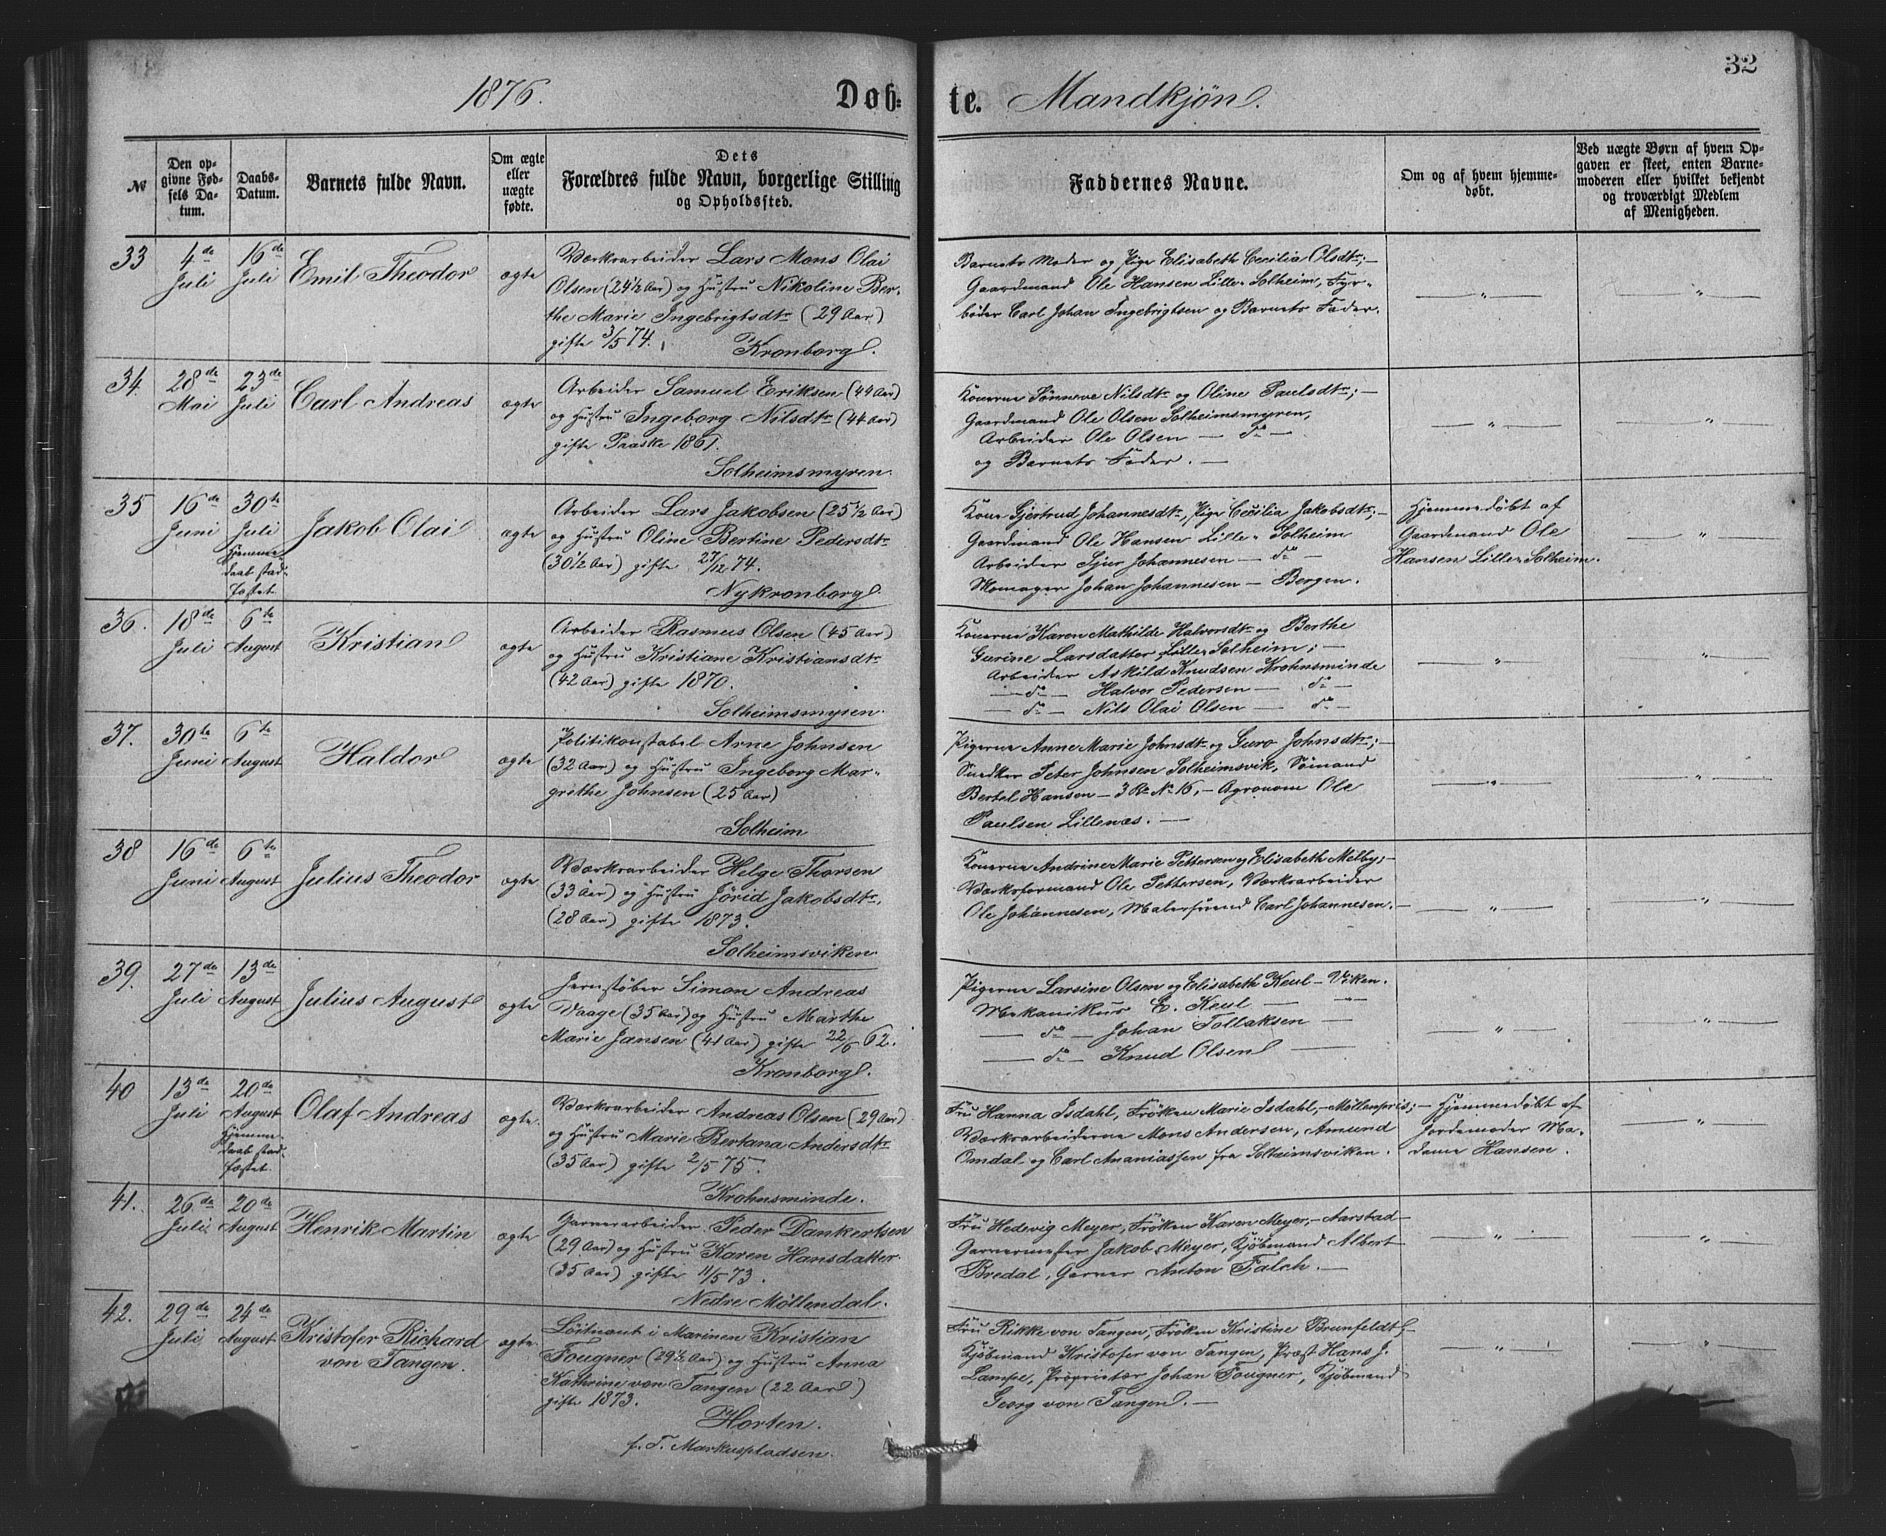 32
1876. Døb- te. Mandkjön.
№
Den op-
givne Fød-
sels Da-
tum.
Daabs-
Datum.
Barnets fulde Navn.
Om ægte
eller
uægte
fødte.
Dets
Forældres fulde Navn, borgerlige Stilling
og Opholdssted.
Faddernes Navne.
Om og af hvem hjemme-
døbt.
Ved uægte Børn af hvem Op-
gaven er skeet, enten Barne-
moderen eller hvilket bekjendt
og troværdigt Medlem
af Menigheden.
33
4de
Juli
16de
Juli
Emil Theodor
ægte
Værksarbeider Lars Mons Olai
Olsen (24½ Aar) og Hustru Nikoline Ber-
the Marie Ingebrigtsdtr (29 Aar)
gifte 3/5 74.
Kronborg.
Barnets Moder og Pige Elisabeth Cecilia Olsdtr; —
Gaardmand Ole Hansen Lille-Solheim, Fyr-
bøder Carl Johan Ingebrigtsen og Barnets Fader.
— " —
— " —
34.
28de
Mai
23de
Juli
Carl Andreas
ægte
Arbeider Samuel Eriksen (44 Aar)
og Hustru Ingeborg Nilsdtr (44 Aar)
gifte Paaske 1861.
Solheimsmyren.
Konerne Sönneve Nilsdtr og Oline Paulsdtr; —
Gaardmand Ole Olsen Solheimsmyren,
Arbeider Ole Olsen — do —
og Barnets Fader. —
— " —
— " —
35
16de
Juni
30te
Juli
Hjemme-
daab stad-
fæstet
Jakob Olai
ægte
Arbeider Lars Jakobsen (25½ Aar)
og Hustru Oline Bertine Pedersdtr
(30½ Aar) gifte 27/12 74.
Nykronborg.
Kone Gjertrud Johannesdtr, Pige Cecilia Jakobsdtr; —
Gaardmand Ole Hansen Lille-Solheim
Arbeider Sjur Johannesen — do —
Skomager Johan Johannesen — Bergen.
Hjemmedøbt af
Gaardmand Ole
Hansen Lille-Solheim.
— " —
36.
18de
Juli
6te
August
Kristian
ægte
Arbeider Rasmus Olsen (45 Aar)
og Hustru Kristiane Kristiansdtr
(42 Aar) gifte 1870.
Solheimsmyren.
Konerne Karen Mathilde Halvorsdtr og Berthe
Gurine Larsdatter Lille-Solheim; —
Arbeider Askild Knudsen Krohnsminde
— do — Halvor Pedersen — do —
— do — Nils Olai Olsen — do —
— " —
— " —
37.
30te
Juni
6te
August
Haldor
ægte
Politikonstabel Arne Johnsen
(32 Aar) og Hustru Ingeborg Mar-
grethe Johnsen (25 Aar)
Solheim
Pigerne Anne Marie Johnsdtr og Guro Johnsdtr; —
Snedker Peter Johnsen Solheimsvik, Sömand
Bertel Hansen — 3 Rd No 16, — Agronom Ole
Paulsen Lillenæs. —
— " —
— " —
38
16de
Juni
6te
August
Julius Theodor
ægte
Værksarbeider Helge Thorsen
(33 Aar) og Hustru Jörid Jakobsdtr,
(28 Aar) gifte 1873.
Solheimsviken.
Konerne Andrine Marie Pettersen og Elisabeth Melby; —
Værksformand Ole Pettersen, Værksarbeider
Ole Johannesen, Malersvend Carl Johannesen. —
— " —
— " —
39.
27de
Juli
13de
August
Julius August
ægte
Jernstøber Simon Andreas
Vaage (35 Aar) og Hustru Marthe
Marie Jansen (41 Aar) gifte 22/6 62.
Kronborg.
Pigerne Larsine Olsen og Elisabeth Keul — Viken.
Mekanikus E. Keul — " —
— do — Johan Tollaksen —
— do — Knud Olsen —
— " —
— " —
40
13de
Juli
20de
August
Hjemme-
daab stad-
fæstet.
Olaf Andreas
ægte.
Værksarbeider Andreas Olsen (29 Aar)
og Hustru Marie Bertana Andersdtr
(35 Aar) gifte 2/5 75.
Krohnsminde.
Fru Hanna Isdahl, Fröken Marie Isdahl, — Möllenpris; —
Værksarbeiderne Mons Andersen, Amund
Omdal og Carl Ananiassen fra Solheimsviken.
Hjemmedøbt af
Jordemoder Ma-
dame Hansen.
— " —
41.
26de
Juli
20de
August
Henrik Martin
ægte
Garverarbeider Peder Dankertsen
(29 Aar) og Hustru Karen Hansdatter
(35 Aar) gifte 11/5 73.
Nedre Möllendal.
Fru Hedevig Meyer, Fröken Karen Meyer, — Aarstad —
Garvermester Jakob Meyer, Kjöbmand Albert
Bredal, Garver Anton Falch. —
— " —
— " —
42.
29de
Juli
24de
August
Kristofer Richard
von Tangen.
ægte
Löitnant i Marinen Kristian
Fougner (29½ Aar) og Hustru Anna
Kathrine von Tangen (22 Aar)
gifte 1873.
Horten.
f. T. Markuspladsen.
Fru Rikke von Tangen, Fröken Kristine Brunfeldt, —
Kjöbmand Kristofer von Tangen, Præst Hans J.
Lampe, Proprietær Johan Fougner, Kjöbmand
Georg von Tangen. —
— " —
— " —